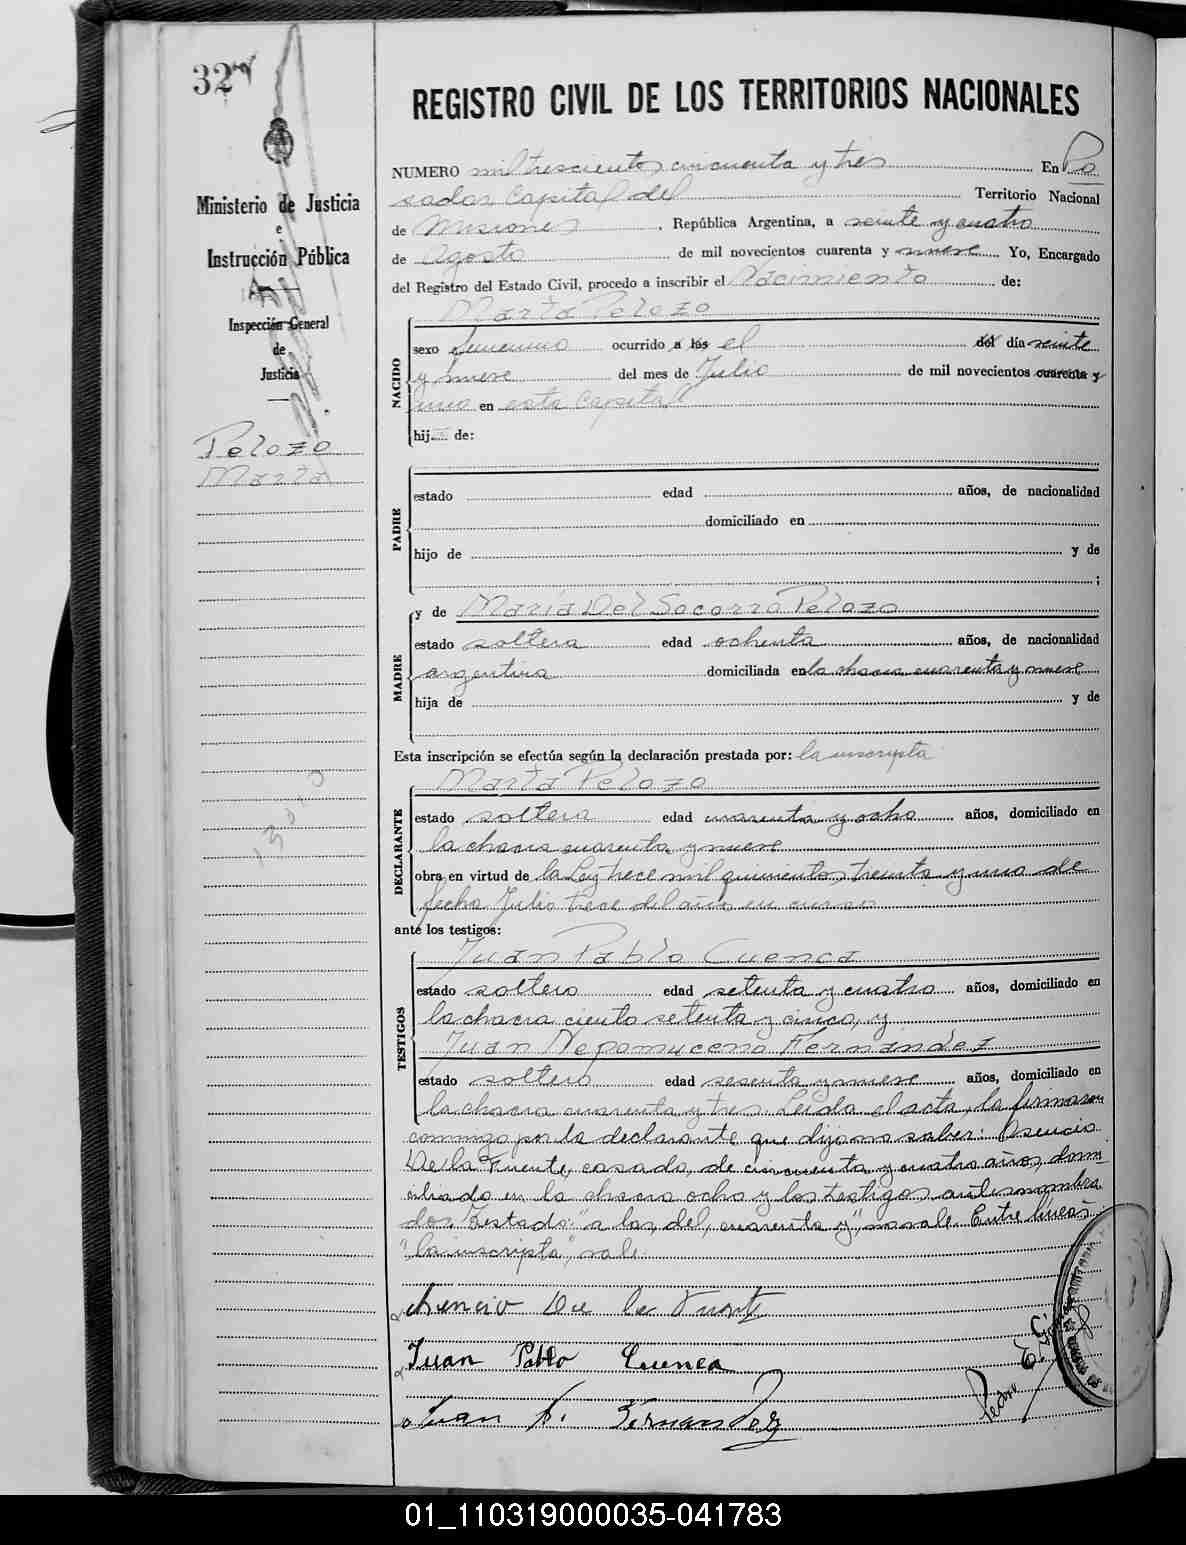 327
Ministerio de Justicia
e
Instrucción Pública
Inspección General
de
Justicia
Pelozo
Marta
REGISTRO CIVIL DE LOS TERRITORIOS NACIONALES
NUMERO mil trescientos cincuenta y tres En Po
sadas, Capital del Territorio Nacional
de Misiones, República Argentina, a veinte y cuatro
de Agosto de mil novecientos cuarenta y nueve Yo, Encargado
del Registro del Estado Civil, procedo a inscribir el Nacimiento de:
Marta Pelozo
NACIDO
sexo femenino ocurrido a las el del día veinte
y nueve del mes de Julio de mil novecientos cuarenta y
uno en esta Capital
hij de:
PADRE
estado edad años, de nacionalidad
domiciliado en
hijo de y de
;
MADRE
y de María Del Socorro Pelozo
estado soltera edad ochenta años, de nacionalidad
argentina domiciliada en la chacra cuarenta y nueve
hija de y de
Esta inscripción se efectúa según la declaración prestada por: la inscripta
DECLARANTE
Marta Pelozo
estado soltera edad cuarenta y ocho años, domiciliado en
la chacra cuarenta y nueve
obra en virtud de la Ley trece mil quinientos treinta y uno de
fecha Julio trece del año en curso
ante los testigos:
TESTIGOS
Juan Pablo Cuenca
estado soltero edad setenta y cuatro años, domiciliado en
la chacra ciento setenta y cinco, y
Juan Nepomuceno Fernández
estado soltero edad sesenta y nueve años, domiciliado en
la chacra cuarenta y tres. Leída el acta, la firmaron
conmigo por la declarante que dijo no saber: Asencio
De la Fuente, casado, de cincuenta y cuatro años, domi-
ciliado en la chacra ocho y los testigos antes nombra
dos. Testado: "a las, del, cuarenta y", no vale. Entre líneas
"la inscripta", vale.
Asencio De la Fuente
Juan Pablo Cuenca
Juan N. Fernandez
Pedro E.
01_110319000035-041783